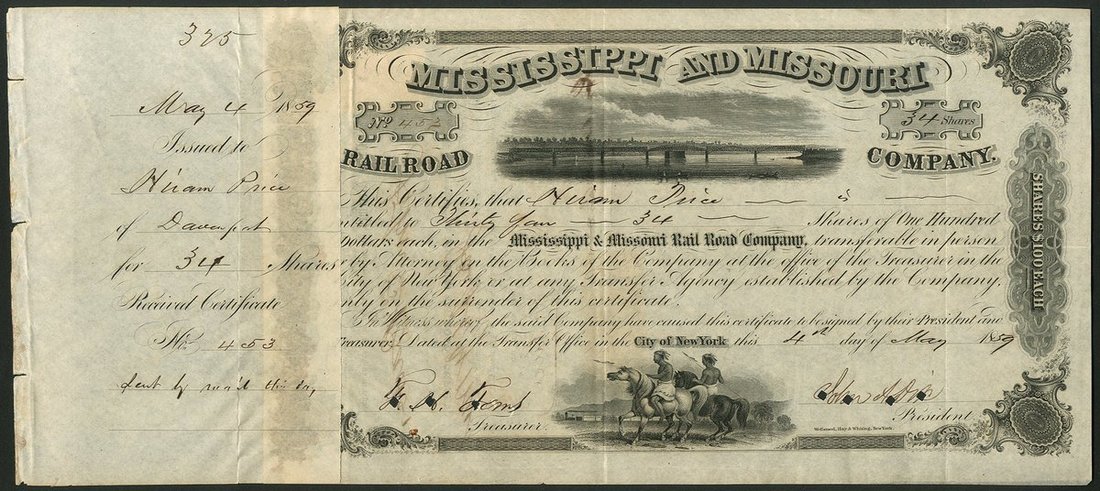 325
May 4 1859
Issued to
Hiram Price
of Davenport
for 34 Shares
Received Certificate
No. 453
Sent by mail this day
MISSISSIPPI AND MISSOURI
No 453
34 Shares
RAIL ROAD COMPANY.
This Certifies, that Hiram Price is
entitled to Thirty four 34 Shares of One Hundred
Dollars each, in the Mississippi & Missouri Rail Road Company, transferable in person
or by Attorney on the Books of the Company at the office of the Treasurer in the
City of New York or at any Transfer Agency established by the Company,
only on the surrender of this certificate.
In Witness whereof the said Company have caused this certificate to be signed by their President and
Treasurer. Dated at the Transfer Office in the City of New York this 4th day of May 1859
John A Dix
Treasurer.
President
McGuined, Hay & Whiting, New York.
SHARES $100 EACH